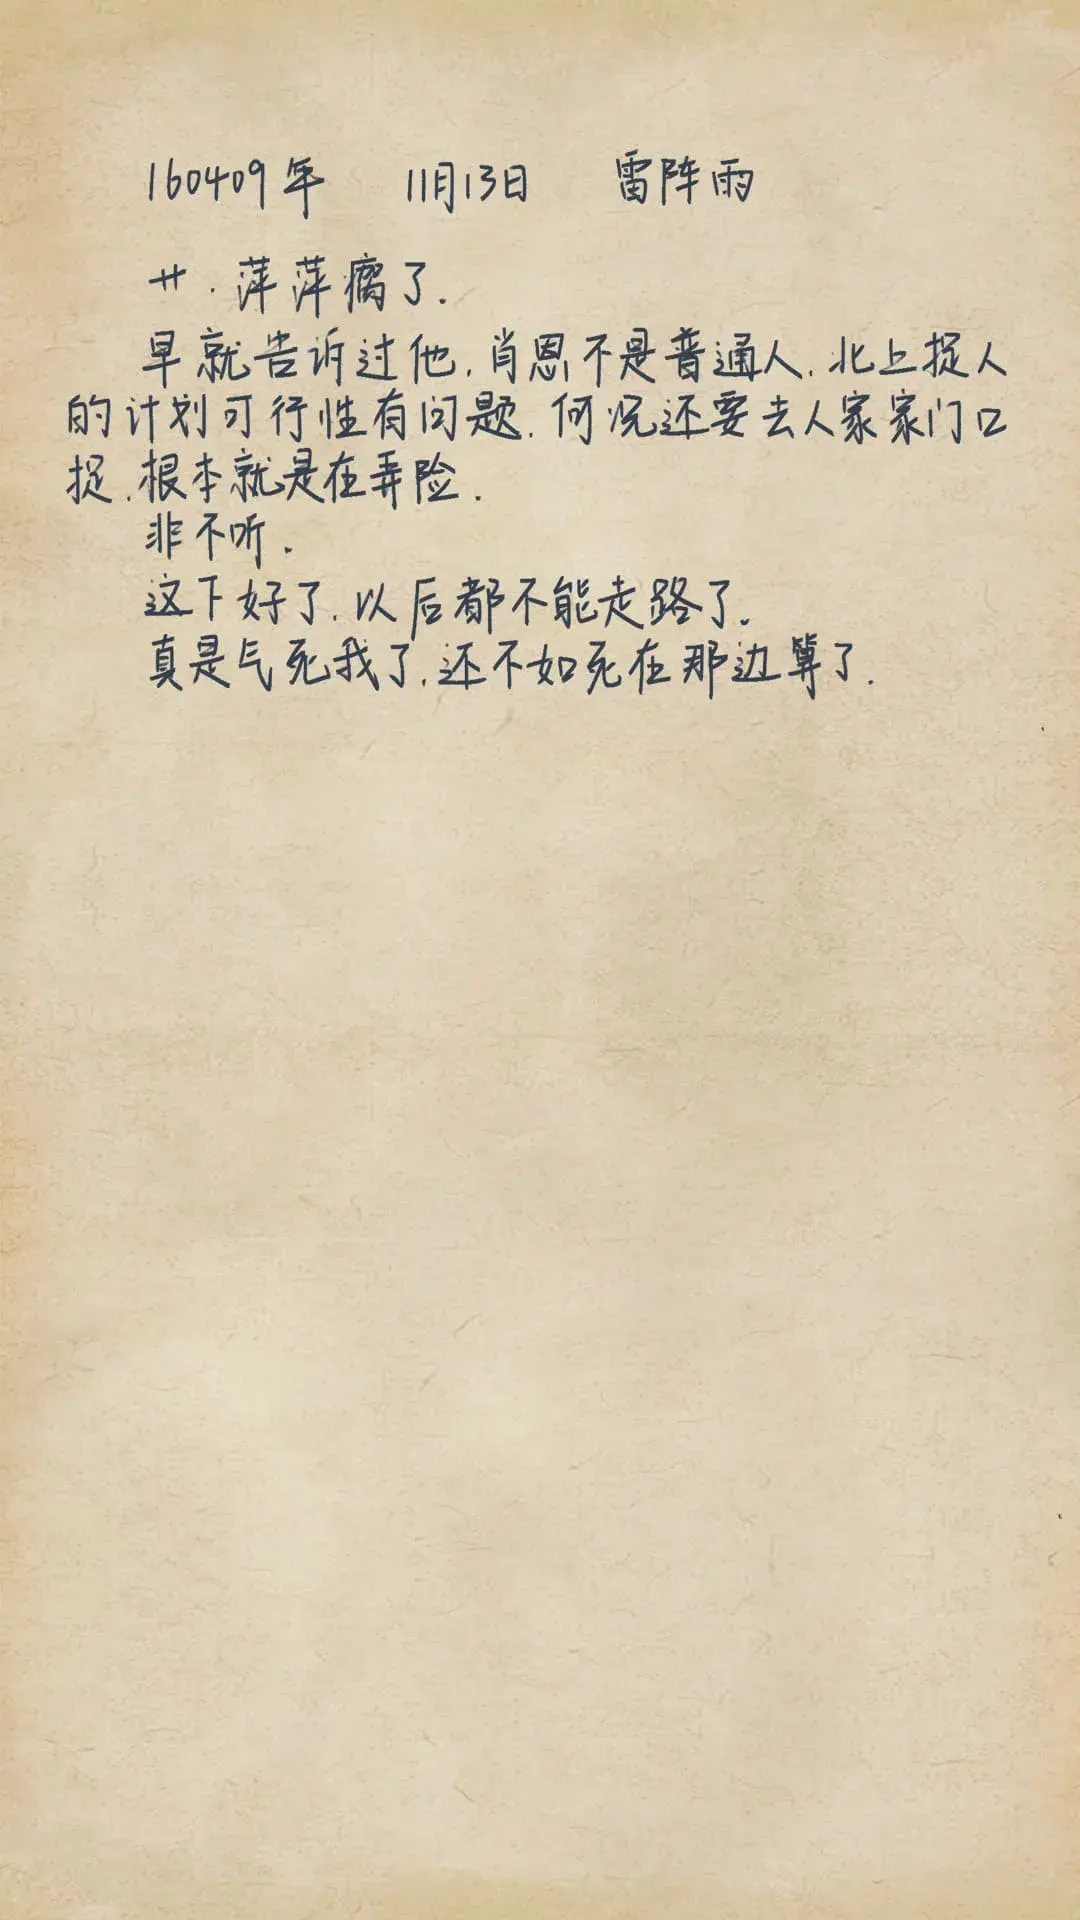 160409年 11月13日 雷阵雨
艹.萍萍瘸了.
早就告诉过他,肖恩不是普通人,北上捉人
的计划可行性有问题,何况还要去人家家门口
捉,根本就是在弄险.
非不听.
这下好了,以后都不能走路了.
真是气死我了,还不如死在那边算了.